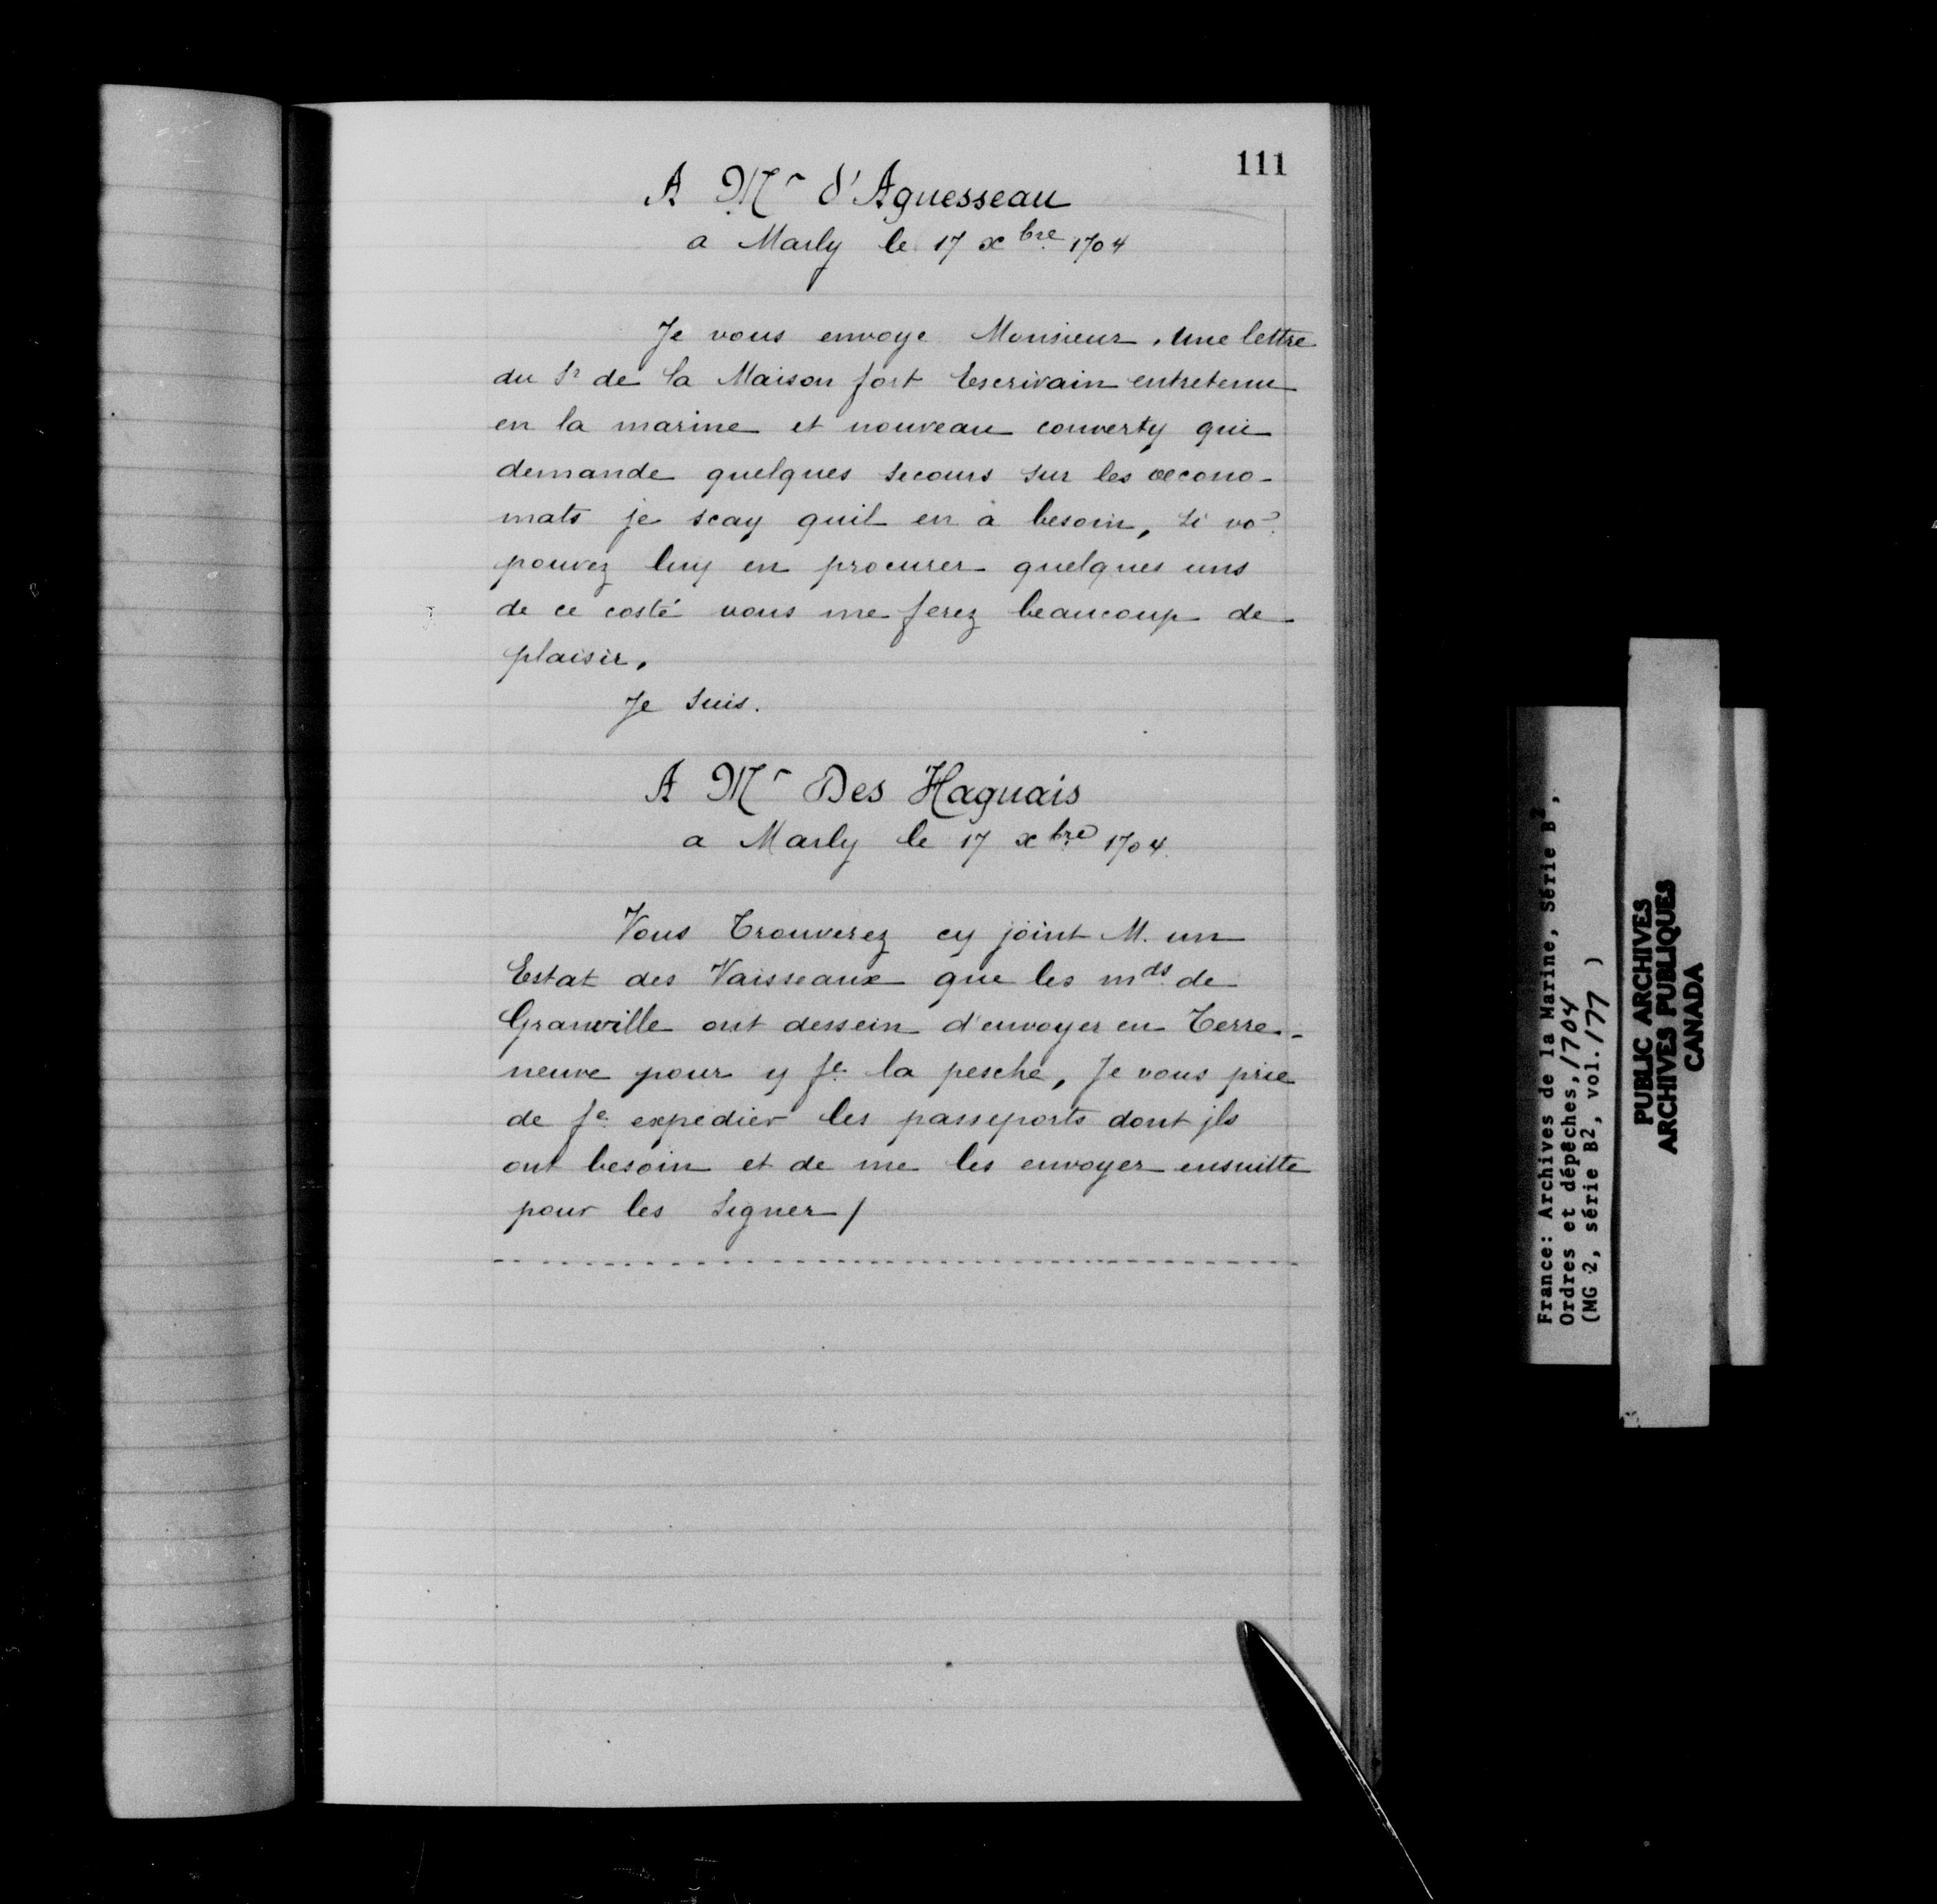 111
A Mr d'Aguesseau
a Marly le 17 xbre 1704
Je vous envoye Monsieur, une lettre
du Sr de la Maison fort Escrivain entretenu
en la marine et nouveau converty qui
demande quelques secours sur les œcono-
mats je scay quil en à besoin, si vos
pouvez luy en procurer quelques uns
de ce costé vous me ferez beaucoup de
plaisir.
Je suis.
A Mr Des Haguais
a Marly le 17 xbre 1704.
Vous trouverez cy joint M. un
Estat des Vaisseaux que les mds de
Granville ont dessein d'envoyer en Terre-
neuve pour y fe la pesche, Je vous prie
de fe expedier les passeports dont jls
ont besoin et de me les envoyer ensuitte
pour les signer /
France: Archives de la Marine, Série B2,
Ordres et dépêches, 1704
(MG 2, série B2, vol. 177 )
PUBLIC ARCHIVES
ARCHIVES PUBLIQUES
CANADA